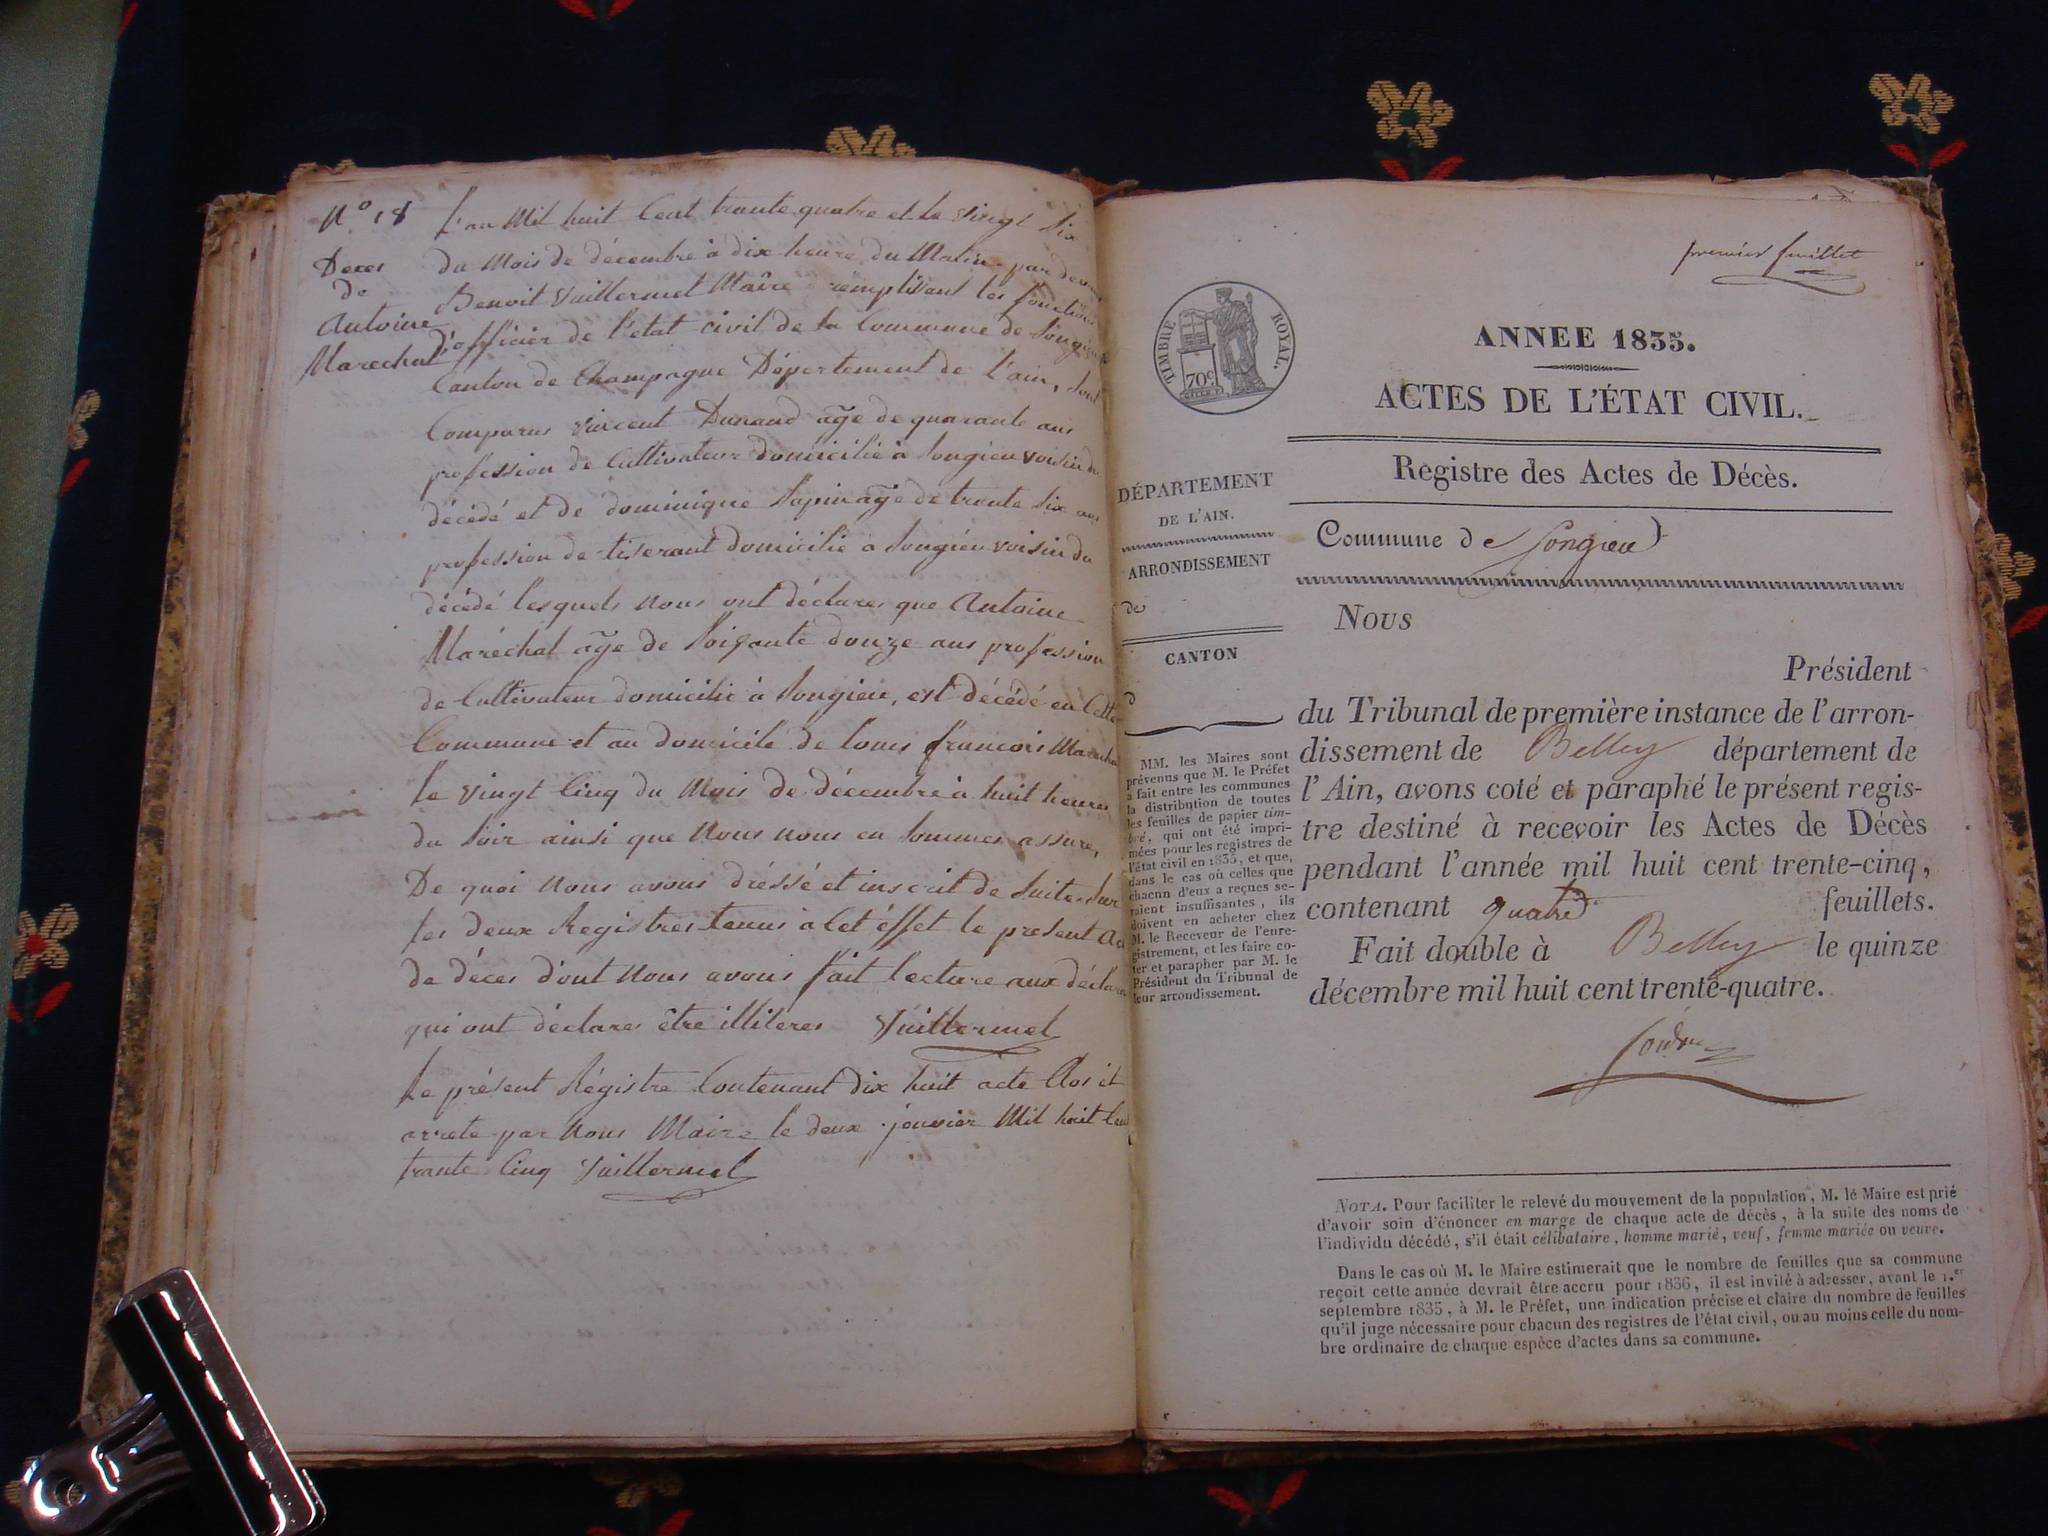 N.º 18
Deces
de
Antoine
Marechal
L'an Mil huit Cent trante quatre et le vingt Six
du Mois de décembre à dix heure du Matin par devant
Benoit Vuillermet Maire remplissant les fonctions
d'officier de l'état civil de la Commune de Songieu
Canton de Champagne Département de l'ain, sont
Comparus vincent Dunand agé de quarante ans
profession de Cultivateur domicilié à Songieu voisin du
décédé et de dominique Papin agé de trante Six ans
profession de tiserant domicilié a Songieu voisin du
décédé lesquels nous ont déclarer que Antoine
Maréchal agé de Soiçante douze ans profession
de Cultivateur domicilié à Songieu, est décédé en Cette
Commune et au domicile de louis francois Marechal
le vingt Cinq du Mois de décembre à huit heures
du Soir ainsi que Nous nous en Sommes assurer,
De quoi Nous avons dréssé et inscrit de Suite Sur
les deux Registres tenus a Cet éffet le présent Acte
de déces d'ont Nous avons fait lecture aux déclarants
qui ont déclarer être illiteres Vuillermet
Le présent Régistre Contenant dix huit acte Clos et
arrete par Nous Maire le deux janvier Mil huit Cent
trante Cinq Vuillermet
premier feuillet
TIMBRE ROYAL.
70 c.
ANNEE 1835.
ACTES DE L'ÉTAT CIVIL.
Registre des Actes de Décès.
Commune de Songieu
DÉPARTEMENT
DE L'AIN.
ARRONDISSEMENT
de
CANTON
d
MM. les Maires sont
prévenus que M. le Préfet
a fait entre les communes
la distribution de toutes
les feuilles de papier tim-
bré, qui ont été impri-
mées pour les registres de
l'état civil en 1835, et que,
dans le cas où celles que
chacun d'eux a reçues se-
raient insuffisantes, ils
doivent en acheter chez
M. le Receveur de l'enre-
gistrement, et les faire co-
ter et parapher par M. le
Président du Tribunal de
leur arrondissement.
Nous
Président
du Tribunal de première instance de l'arron-
dissement de Belley département de
l'Ain, avons coté et paraphé le présent regis-
tre destiné à recevoir les Actes de Décès
pendant l'année mil huit cent trente-cinq,
contenant quatre feuillets.
Fait double à Belley le quinze
décembre mil huit cent trente-quatre.
NOTA. Pour faciliter le relevé du mouvement de la population, M. le Maire est prié
d'avoir soin d'énoncer en marge de chaque acte de décès, à la suite des noms de
l'individu décédé, s'il était célibataire, homme marié, veuf, femme mariée ou veuve.
Dans le cas où M. le Maire estimerait que le nombre de feuilles que sa commune
reçoit cette année devrait être accru pour 1836, il est invité à adresser, avant le 1.er
septembre 1835, à M. le Préfet, une indication précise et claire du nombre de feuilles
qu'il juge nécessaire pour chacun des registres de l'état civil, ou au moins celle du nom-
bre ordinaire de chaque espèce d'actes dans sa commune.